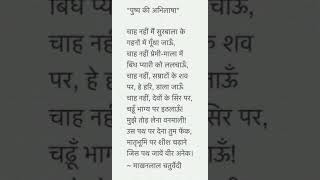 "पुष्प की अभिलाषा"
चाह नहीं मैं सुरबाला के
गहनों में गूँथा जाऊँ,
चाह नहीं प्रेमी-माला में
बिंध प्यारी को ललचाऊँ,
चाह नहीं, सम्राटों के शव
पर, हे हरि, डाला जाऊँ
चाह नहीं, देवों के सिर पर,
चढ़ूँ भाग्य पर इठलाऊँ!
मुझे तोड़ लेना वनमाली!
उस पथ पर देना तुम फेंक,
मातृभूमि पर शीश चढ़ाने
जिस पथ जावें वीर अनेक।
~ माखनलाल चतुर्वेदी